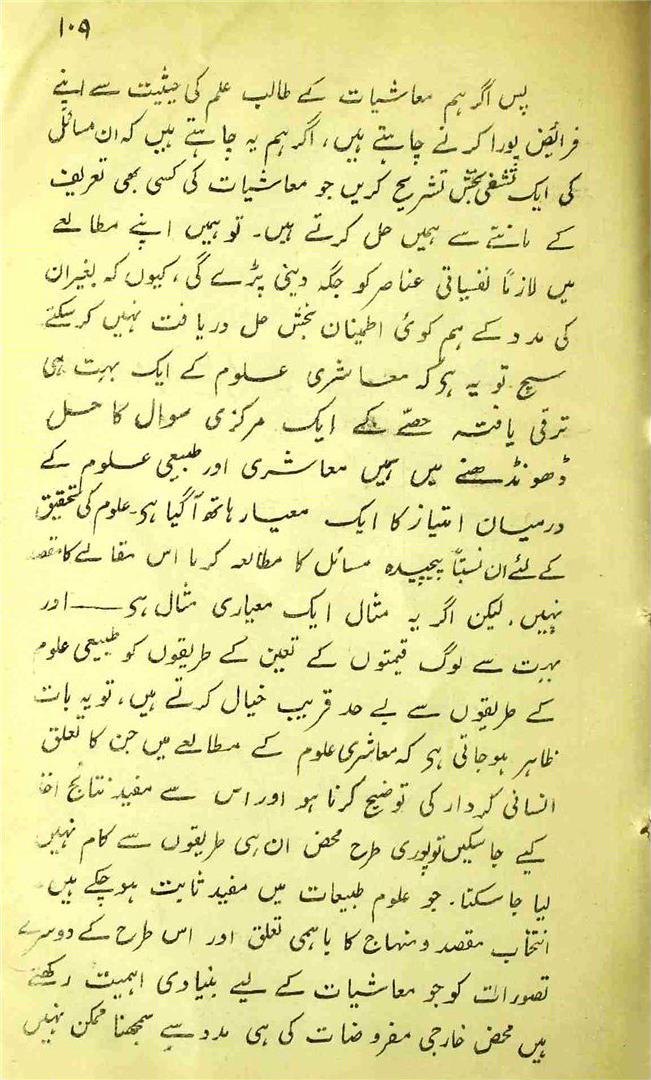 ۱۰۹
پس اگر ہم معاشیات کے طالب علم کی حیثیت سے اپنے
فرائض پورا کرنے چاہتے ہیں، اگر ہم یہ چاہتے ہیں کہ ان مسائل
کی ایک تشفی بخش تشریح کریں جو معاشیات کی کسی بھی تعریف
کے ماننے سے ہمیں حل کرتے ہیں۔ تو ہمیں اپنے مطالعے
میں لازماً نفسیاتی عناصر کو جگہ دینی پڑے گی، کیوں کہ بغیر ان
کی مدد کے ہم کوئی اطمینان بخش حل دریافت نہیں کر سکتے
سچ تو یہ ہی کہ معاشری علوم کے ایک بہت ہی
ترقی یافتہ حصّے کے ایک مرکزی سوال کا حل
ڈھونڈھنے میں ہمیں معاشری اور طبیعی علوم کے
درمیان امتیاز کا ایک معیار ہاتھ آگیا ہی۔ علوم کی تحقیق
کے لئے ان نسبتاً پیچیدہ مسائل کا مطالعہ کرنا اس مقالے کا مقصد
نہیں۔ لیکن اگر یہ مثال ایک معیاری مثال ہی — اور
بہت سے لوگ قیمتوں کے تعین کے طریقوں کو طبیعی علوم
کے طریقوں سے بے حد قریب خیال کرتے ہیں، تو یہ بات
ظاہر ہوجاتی ہی کہ معاشری علوم کے مطالعے میں جن کا تعلق
انسانی کردار کی توضیح کرنا ہو اور اس سے مفید نتائج اخذ
کیے جا سکیں تو پوری طرح محض ان ہی طریقوں سے کام نہیں
لیا جا سکتا۔ جو علوم طبیعات میں مفید ثابت ہو چکے ہیں۔
انتخاب مقصد و منہاج کا باہمی تعلق اور اس طرح کے دوسرے
تصورات کو جو معاشیات کے لیے بنیادی اہمیت رکھتے
ہیں محض خارجی مفروضات کی ہی مدد سے سمجھنا ممکن نہیں